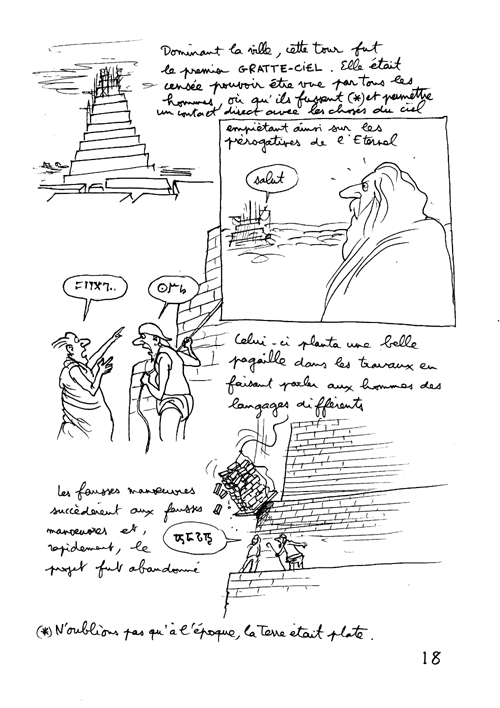 Dominant la ville, cette tour fut
le premier GRATTE-CIEL. Elle était
censée pouvoir être vue par tous les
hommes, où qu'ils fussent (*) et permettre
un contact direct avec les choses du ciel
empiétant ainsi sur les
prérogatives de l'Eternel
salut
Celui-ci planta une belle
pagaille dans les travaux en
faisant parler aux hommes des
langages différents
Les fausses manoeuvres
succèdèrent aux fausses
manoeuvres et,
rapidement, le
projet fut abandonné
(*) N'oublions pas qu'à l'époque, la Terre était plate.
18